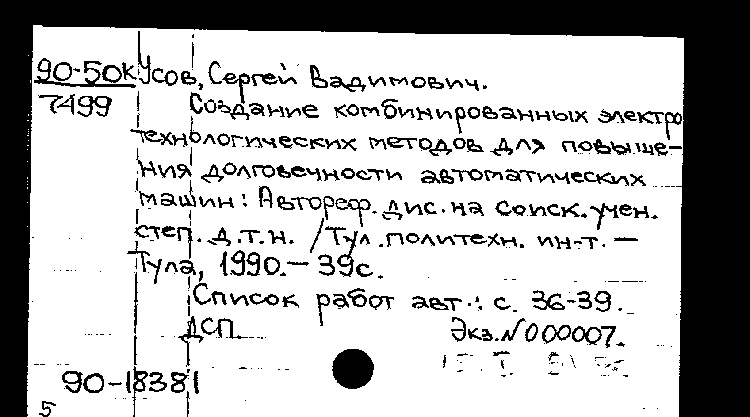 90-50к Усов, Сергей Вадимович.
7499 Создание комбинированных электро
технологических методов для повыше-
ния долговечности автоматических
машин: Автореф. дис. на соиск. учен.
степ. д.т.н. /Тул. политехн. ин-т. —
Тула, 1990. — 39с.
Список работ авт.: с. 36-39.
ДСП. Экз. N000007.
90-18381
5